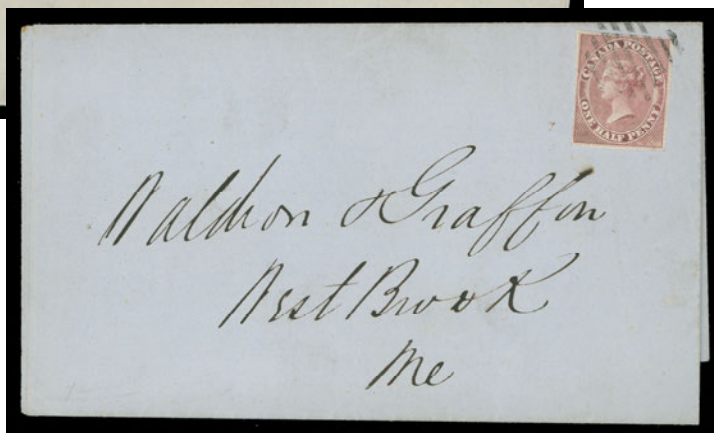 CANADA POSTAGE
ONE HALF PENNY
Waldron & Graffon
West Brook
Me